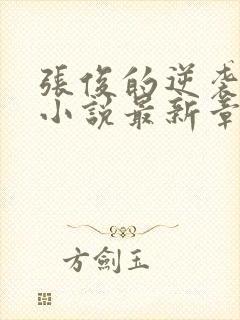 張俊的逆袭
小說最新章
方劍玉